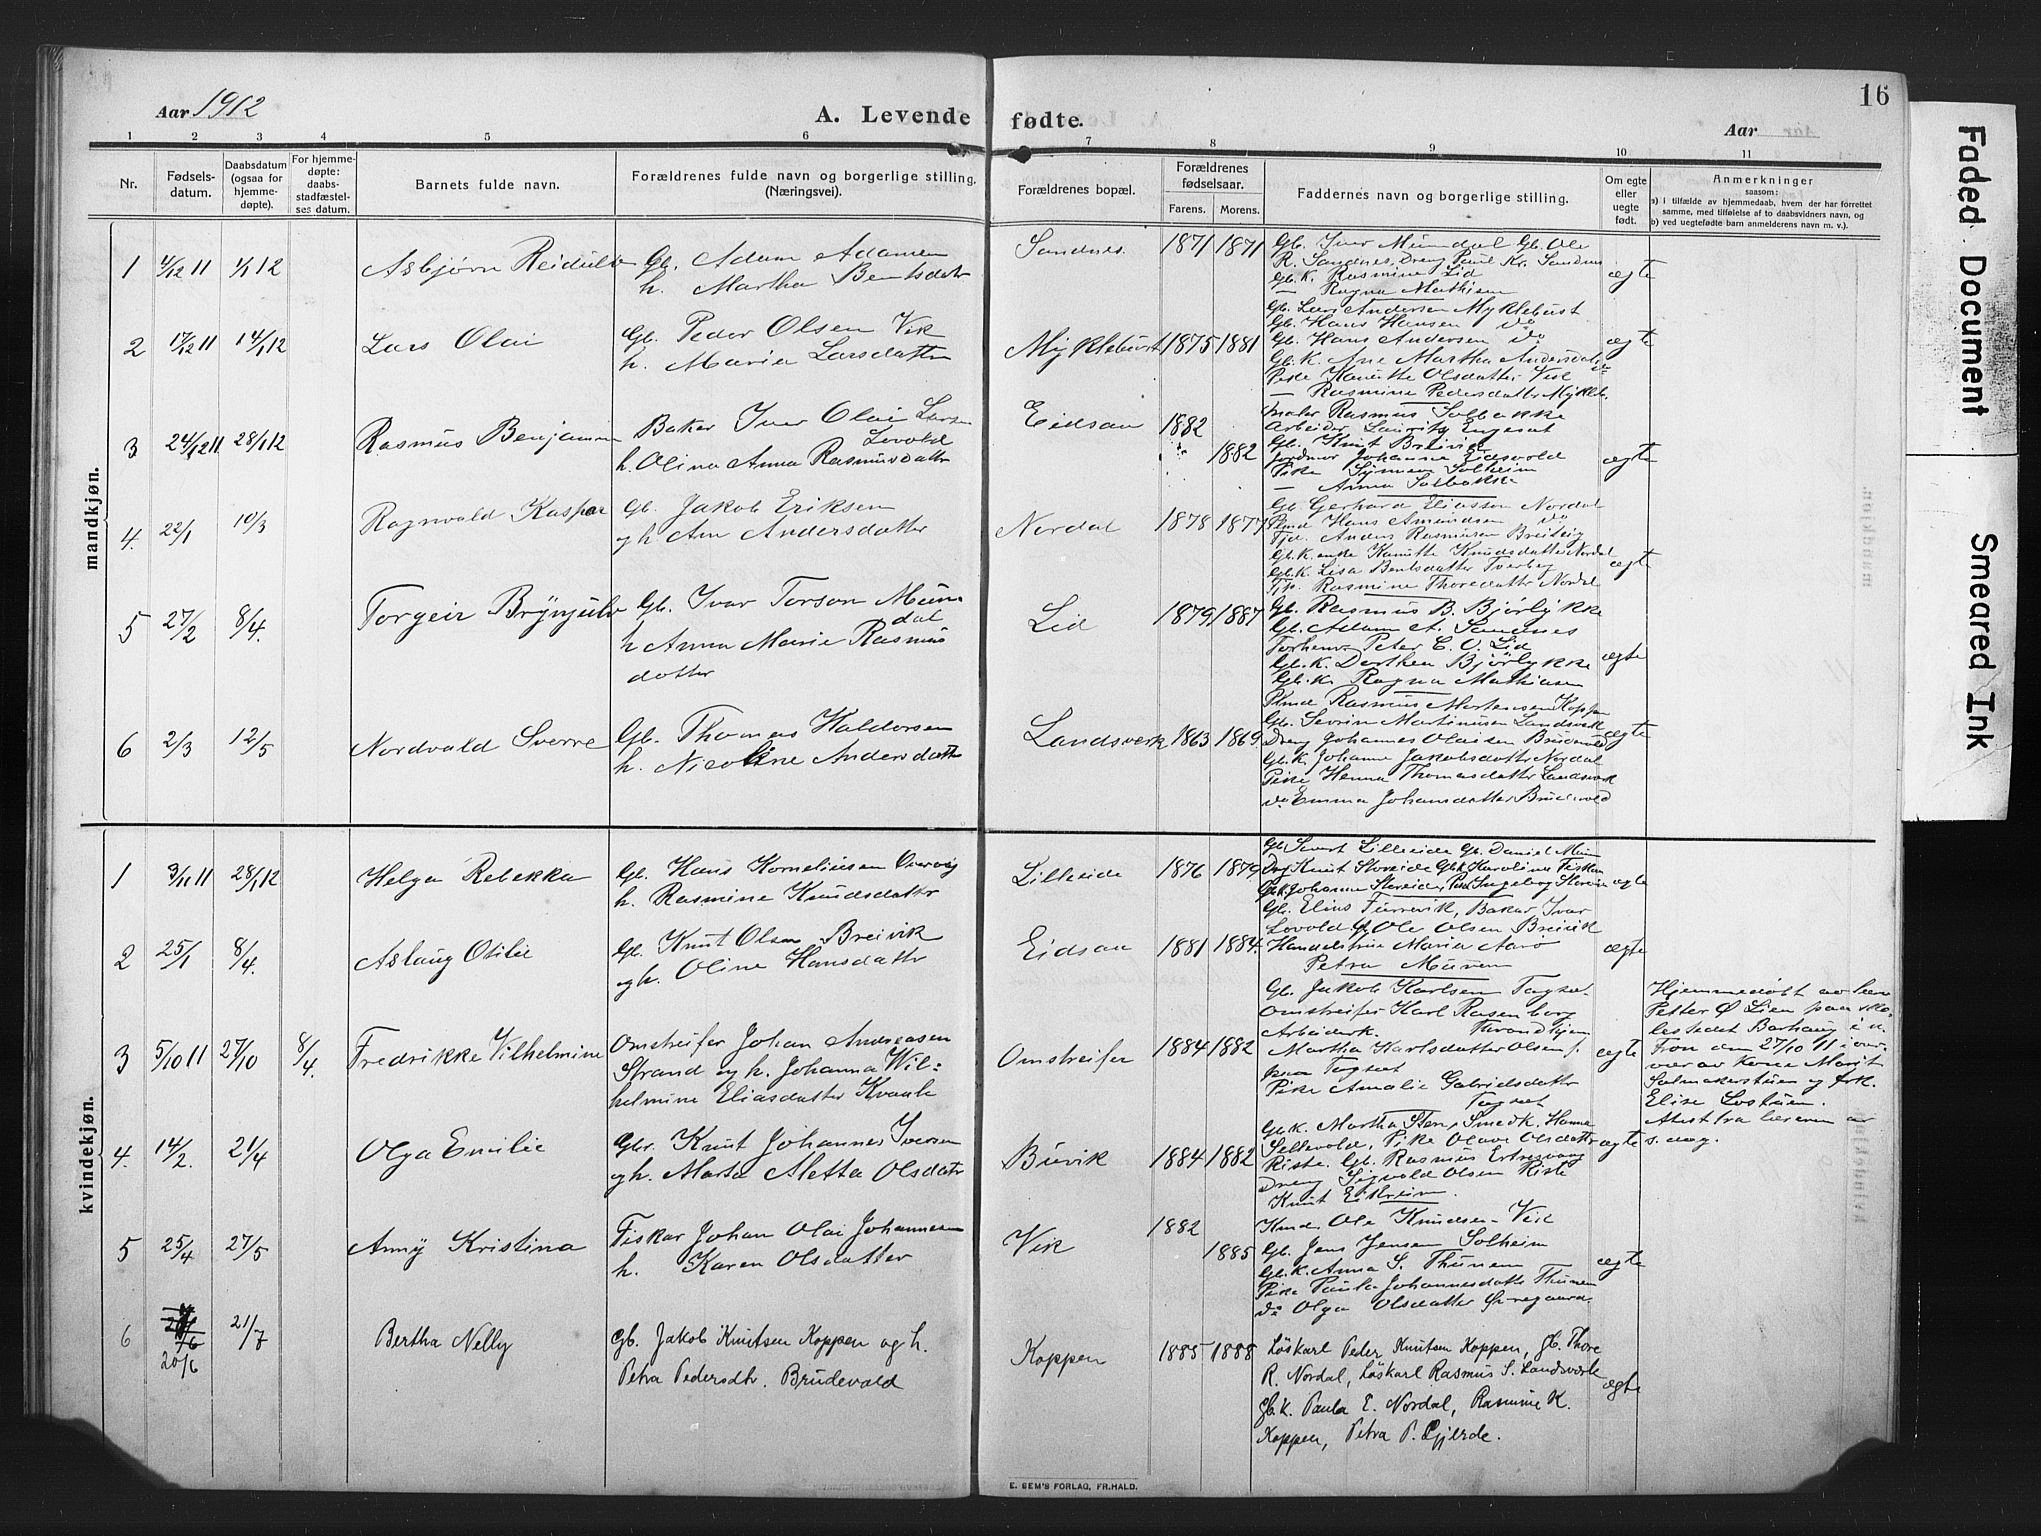 16
Aar 1912
A. Levende fødte.
Aar
1 2 3 4 5 6 7 8 9 10 11
Nr.
Fødsels-
datum.
Daabsdatum
(ogsaa for
hjemme-
døpte).
For hjemme-
døpte:
daabs-
stadfæstel-
ses datum.
Barnets fulde navn.
Forældrenes fulde navn og borgerlige stilling.
(Næringsvei).
Forældrenes bopæl.
Forældrenes
fødselsaar.
Farens. Morens.
Faddernes navn og borgerlige stilling.
Om egte
eller
uegte
født.
Anmerkninger
saasom:
a) i tilfælde av hjemmedaab, hvem der har forrettet
samme, med tilføielse af to daabsvidners navn, og
b) ved uegtefødte barn anmelderens navn m. v.).
mandkjøn.
1 4/12 11 1/1 12 Asbjørn Reidulv
Gb. Adam Adamsen
h. Martha Bentsdatr
Sandnes. 1871 1871
Gb. Iver Mundal Gb. Ole
R. Sandnes, Dreng Paul Kr. Sandnes
Gb.K. Rasmine Lid
— Ragna Mathisen
ægte
2 17/12 11 14/1 12 Lars Olai
Gb. Peder Olsen Vik
h. Maria Larsdatter
Myklebust 1875 1881
Gb. Lars Andersen Myklebust
Gb. Hans Hansen do
Gb. Hans Andersen do
Gb.K. Ane Martha Andersdatr do
Pike Kanutte Olsdatter Vik
— Rasmine Pedersdatter Mykleb.
ægte
3 24/12 11 28/1 12 Rasmus Benjamin
Baker Iver Olai Larsen
Lovold
h. Olina Anna Rasmusdatter
Eidsaa 1882
1882
Maler Rasmus Solbakke
Arbeider Lauritz Engeset
Gb. Knut Breivik
Jordmor Johanne Eidsvold
Pike Solheim
— Anna Solbakke
ægte
4. 22/1 10/3 Ragnvald Kaspar
Gb. Jakob Eriksen
og h. Ane Andersdatter
Nordal 1878 1877
Gb. Gerhard Eliassen Nordal
Hans Amundsen do
Tjd. Anders Rasmussen Breiteig
Gb.K. enke Kanutte Knudsdatter Nordal
Gb.K. Lisa Bentsdatter Tverberg
Rasmine Thoredatter Nordal
ægte
5 27/2 8/4. Torgeir Brynjulv
Gb. Ivar Torson Mun-
dal
h Anna Marie Rasmus
datter
Lid 1879 1887
Gb. Rasmus B. Bjørlykke
Gb. Adam A. Sandnes
Peter C. O. Lid
Gb.K. Dorthea Bjørlykke
Gb.K. Ragna Mathiasen
ægte
6 2/3 12/5 Nordvald Sverre
Gb. Thomas Haldorsen
h. Nicoline Andersdatter
Landsverk 1863 1869
Rasmus Mortensen Koppen
Gb. Severin Martinusen Landsverk
Dreng Johannes Olaisen Brudevold
Gb.K. Johanne Jakobsdatter Nordal
Pike Hanna Thomasdatter Landsverk
do Emma Johansdatter Brudevold
ægte
kvindekjøn.
1 3/11 11 28/1 12 Helga Rebekka
Gb. Hans Korneliusen
h. Rasmine Knudsdatter
Lilleeide 1876 1879
Gb. Sivert Lilleeide Gb. Daniel
Drg Knut Storeide Gbk Karoline
Gb.K. Johanna Storeide, Pike Ingeborg Storeide
ægte
2 25/1 8/4. Aslaug Otilie
Gb. Knut Olsen Breivik
og h. Oline Hansdatter
Eidsaa 1881 1884.
Gb. Elias Furrevik, Baker Ivar
Lovold Gb. Ole Olsen Breivik
Maria Aarø
Petra Muren
ægte
3 5/10 11 27/10 8/4. Fredrikke Vilhelmine
Omstreifer Johan Andreasen
Strand og h. Johanna Wil-
helmine Eliasdatter Kvaale
Omstreifer 1884 1882
Gb. Jakob Karlsen Tagset
Omstreifer Karl Rosenborg
Arbeiderk. Throndhjem
Martha Karlsdatter Olsen f.
paa Tagset
Pike Amalie Gabrielsdatter
Tagset
ægte
Hjemmedøbt av lærer
Petter Ø Lien paa sko-
lestedet Barhaug i n.
Fron den 27/10 11 i over-
vær av Kone Marit
Salmakerstuen og frk.
Elise Lostuen.
Attest fra læreren av
s. dag.
4. 14/2. 21/4 Olga Emilie
Gbr. Knut Johannes Iversen
og h. Marta Aletta Olsdatr
Buvik 1884 1882
Gb.K. Martha Steen, Smedk. Hanne
Seltevold, Pike Olave Olsdatter
Riste. Gb. Rasmus Ertresvaag
Dreng Sigvald Olsen Riste
Knut Eikrem.
ægte
5 25/4 27/5 Anny Kristina
Fisker Johan Olai Johannesen
h. Karen Olsdatter
Vik 1882
1885
Ole Knudsen Vik
Gb. Jens Jensen Solheim
Gb.K. Anna S. Thunem
Pike Paula Johannesdatter Thunem
do Olga Olsdatter
ægte
6 20/6 21/7 Bertha Nelly
Gb. Jakob Knutsen Koppen og h.
Petra Pedersdtr. Brudevold
Koppen 1885 1888
Løskarl Peder Knutsen Koppen, gb. Thore
R. Nordal, Løskarl Rasmus S. Landsverk
gb.K. Paula E. Nordal, Rasmine K.
Koppen, Petra P. Gjerde.
ægte
E. SEM'S FORLAG, FR.HALD.
Faded Document
Smeared Ink